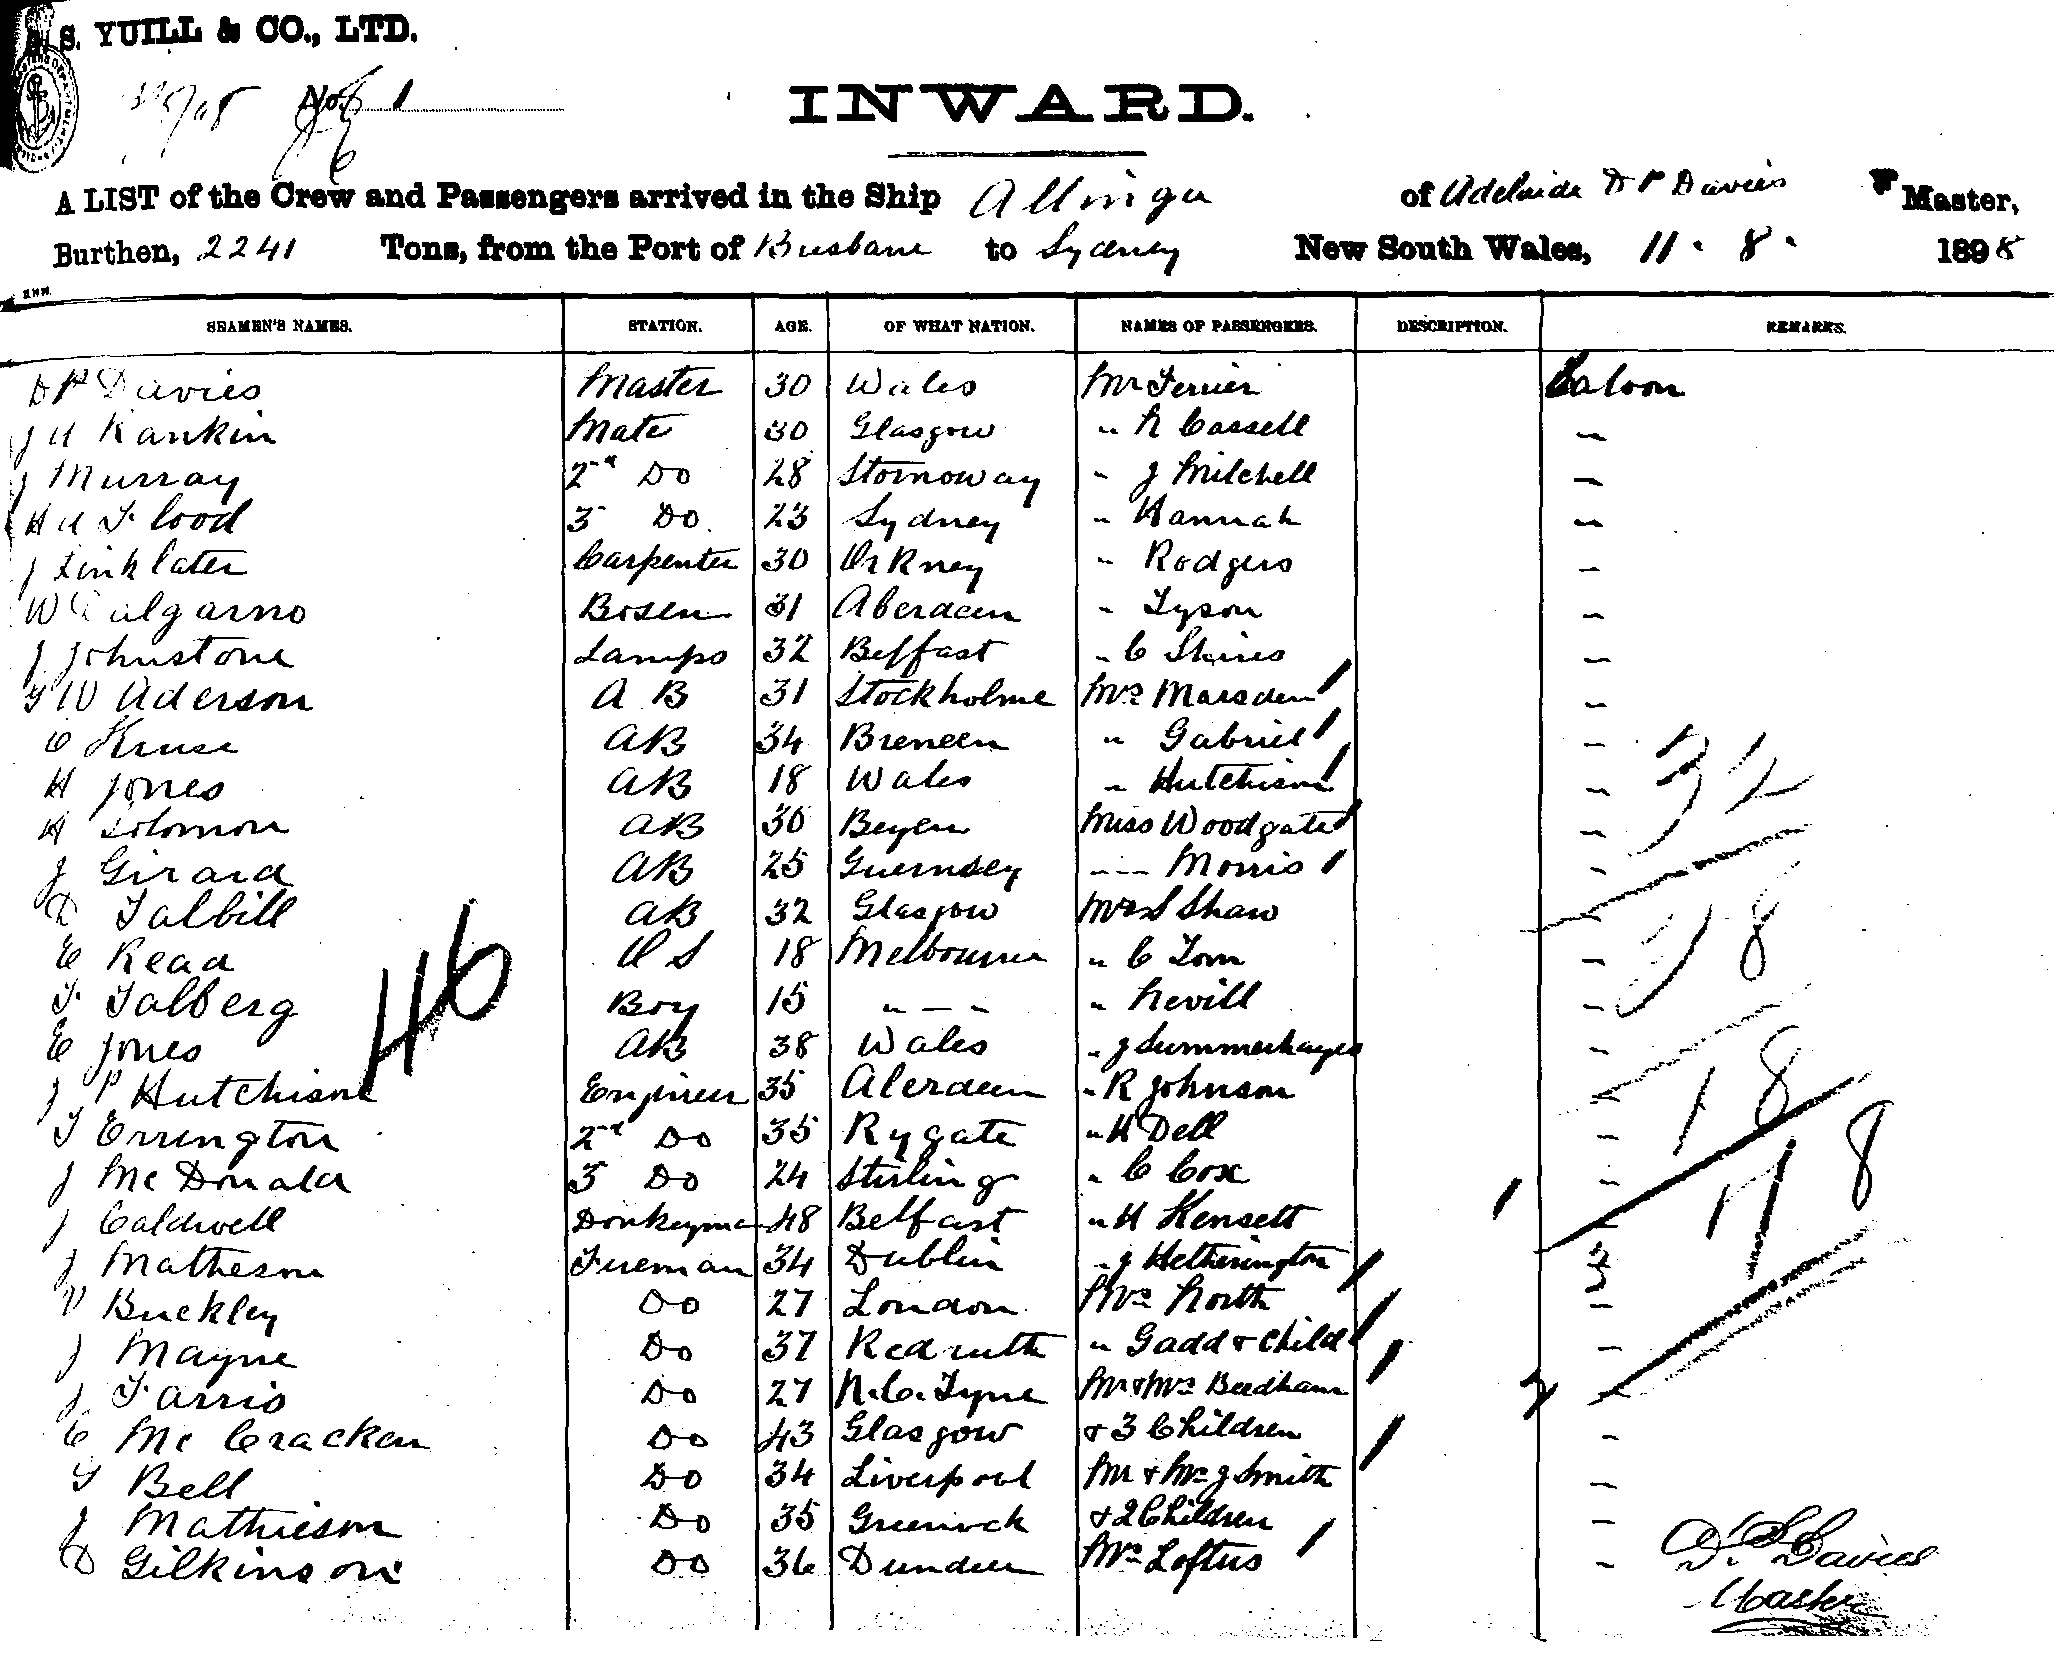 S. YUILL & CO., LTD.
No. 1
INWARD.
A LIST of the Crew and Passengers arrived in the Ship Allinga of Adelaide D P Davies Master,
Burthen, 2241 Tons, from the Port of Brisbane to Sydney New South Wales, 11. 8. 1898
SEAMEN'S NAMES. STATION. AGE. OF WHAT NATION. NAMES OF PASSENGERS. DESCRIPTION. REMARKS.
D P Davies Master 30 Wales Mr Ferrier Saloon
J A Rankin Mate 30 Glasgow " N Cassell "
J Murray 2nd Do 28 Stornoway " J Mitchell "
H A Flood 3 Do. 23 Sydney " Hannah "
J Linklater Carpenter 30 Orkney " Rodgers "
W Dalgarno Bosen 31 Aberdeen " Tyson "
J Johnstone Lamps 32 Belfast " C Shires "
G W Aderson A B 31 Stockholme Mrs Marsden "
C Kruse AB 34 Breneen " Gabriel "
H Jones AB 18 Wales " Hutchison "
H Solomon AB 30 Beyen Miss Woodgate "
J Girard AB 25 Guernsey " Morris "
D Talbill AB 32 Glasgow Mr S Shaw "
E Read O S 18 Melbourne " C Tom "
F. Talberg Boy 15 " " Nevill "
E Jones AB 38 Wales " J Summerhayes "
J P Hutchison Engineer 35 Aberdeen " R Johnson "
T Errington 2nd Do 35 Rygate " H Dell "
J McDonald 3 Do 24 Stirling " C Cox "
J Caldwell Donkeyman 48 Belfast " H Kensett "
J Matheson Fireman 34 Dublin " J Hetherington "
Buckley Do 27 London Mrs North "
J Mayne Do 37 Redruth " Gadd & Child "
J Farris Do 27 N.C. Tyne Mr & Mrs Beedham "
C McCracken Do 43 Glasgow & 3 Children "
G Bell Do 34 Liverpool Mr & Mrs J Smith "
J Mathieson Do 35 Greenock & 2 Children "
D Gilkinson Do 36 Dundee Mrs Loftus "
46
32
38
18
118
D. P. Davies
Master